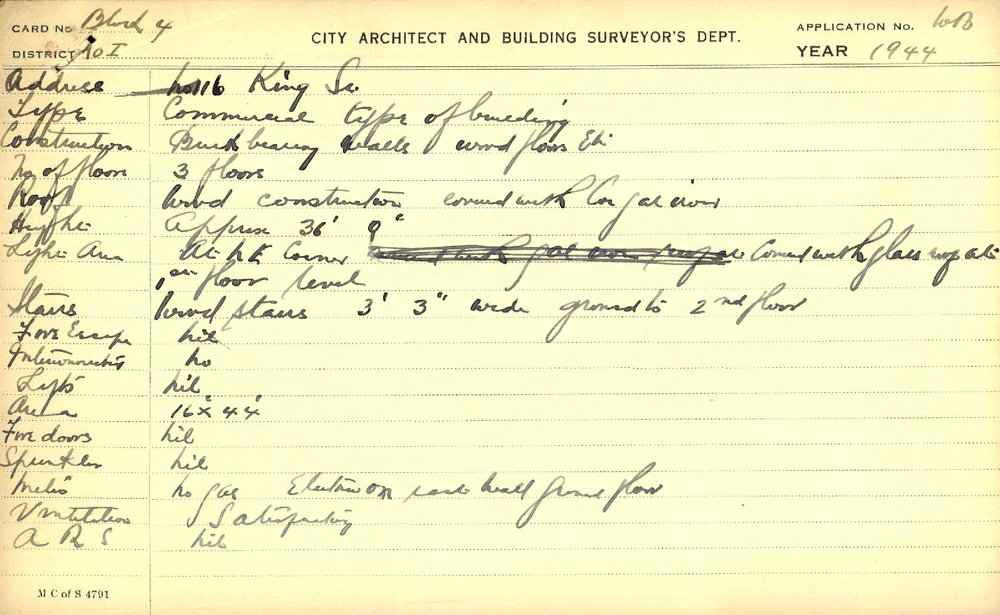 CARD No Block 4
DISTRICT No I
CITY ARCHITECT AND BUILDING SURVEYOR'S DEPT.
APPLICATION No. WB
YEAR 1944
Address No 116 King St.
Type Commercial type of building
Construction Brick bearing walls wood floors Etc
No of floors 3 floors
Roof Wood construction covered with Cor gal iron
Height Approx 36' 9"
Light Area At N E Corner covered with glass roof at
floor level
Stairs Wood stairs 3' 3" wide ground to 2nd floor
Fire Escape nil
Interconnection no
Lifts nil
Area 16' x 44'
Fire doors nil
Sprinkler nil
Meters no gas Electric on east wall ground floor
Ventilation Satisfactory
A R S nil
M C of S 4791